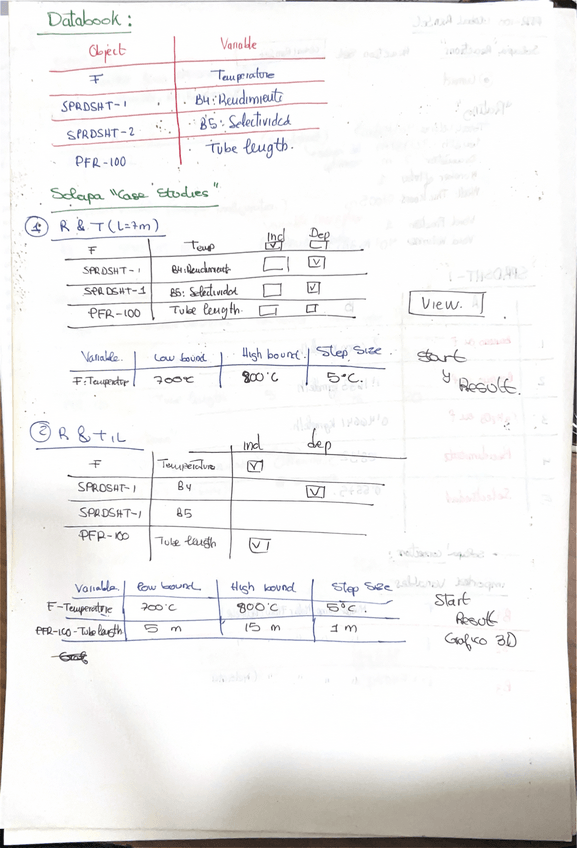 Databook:
Object Variable
F Temperature
SPRDSHT-1 B4: Rendimiento
SPRDSHT-2 B5: Selectividad
PFR-100 Tube length.
Solapa "Case Studies"
1 R & T (L=7m)
Ind Dep
F Temp
SPRDSHT-1 B4: Rendimient
SPRDSHT-1 B5: Selectividad
PFR-100 Tube length.
View.
Variable. Low bound High bound. Step Size
F: Temperatur 700°C 800°C 5°C.
Start
y
Result.
2 R & T, L
ind dep
F Temperature
SPRDSHT-1 B4
SPRDSHT-1 B5
PFR-100 Tube length
Variable. Low bound High bound Step Size
F-Temperature 700°C 800°C 5°C.
PFR-100-Tube length 5 m 15 m 1 m
Start
Result
Grafico 3D